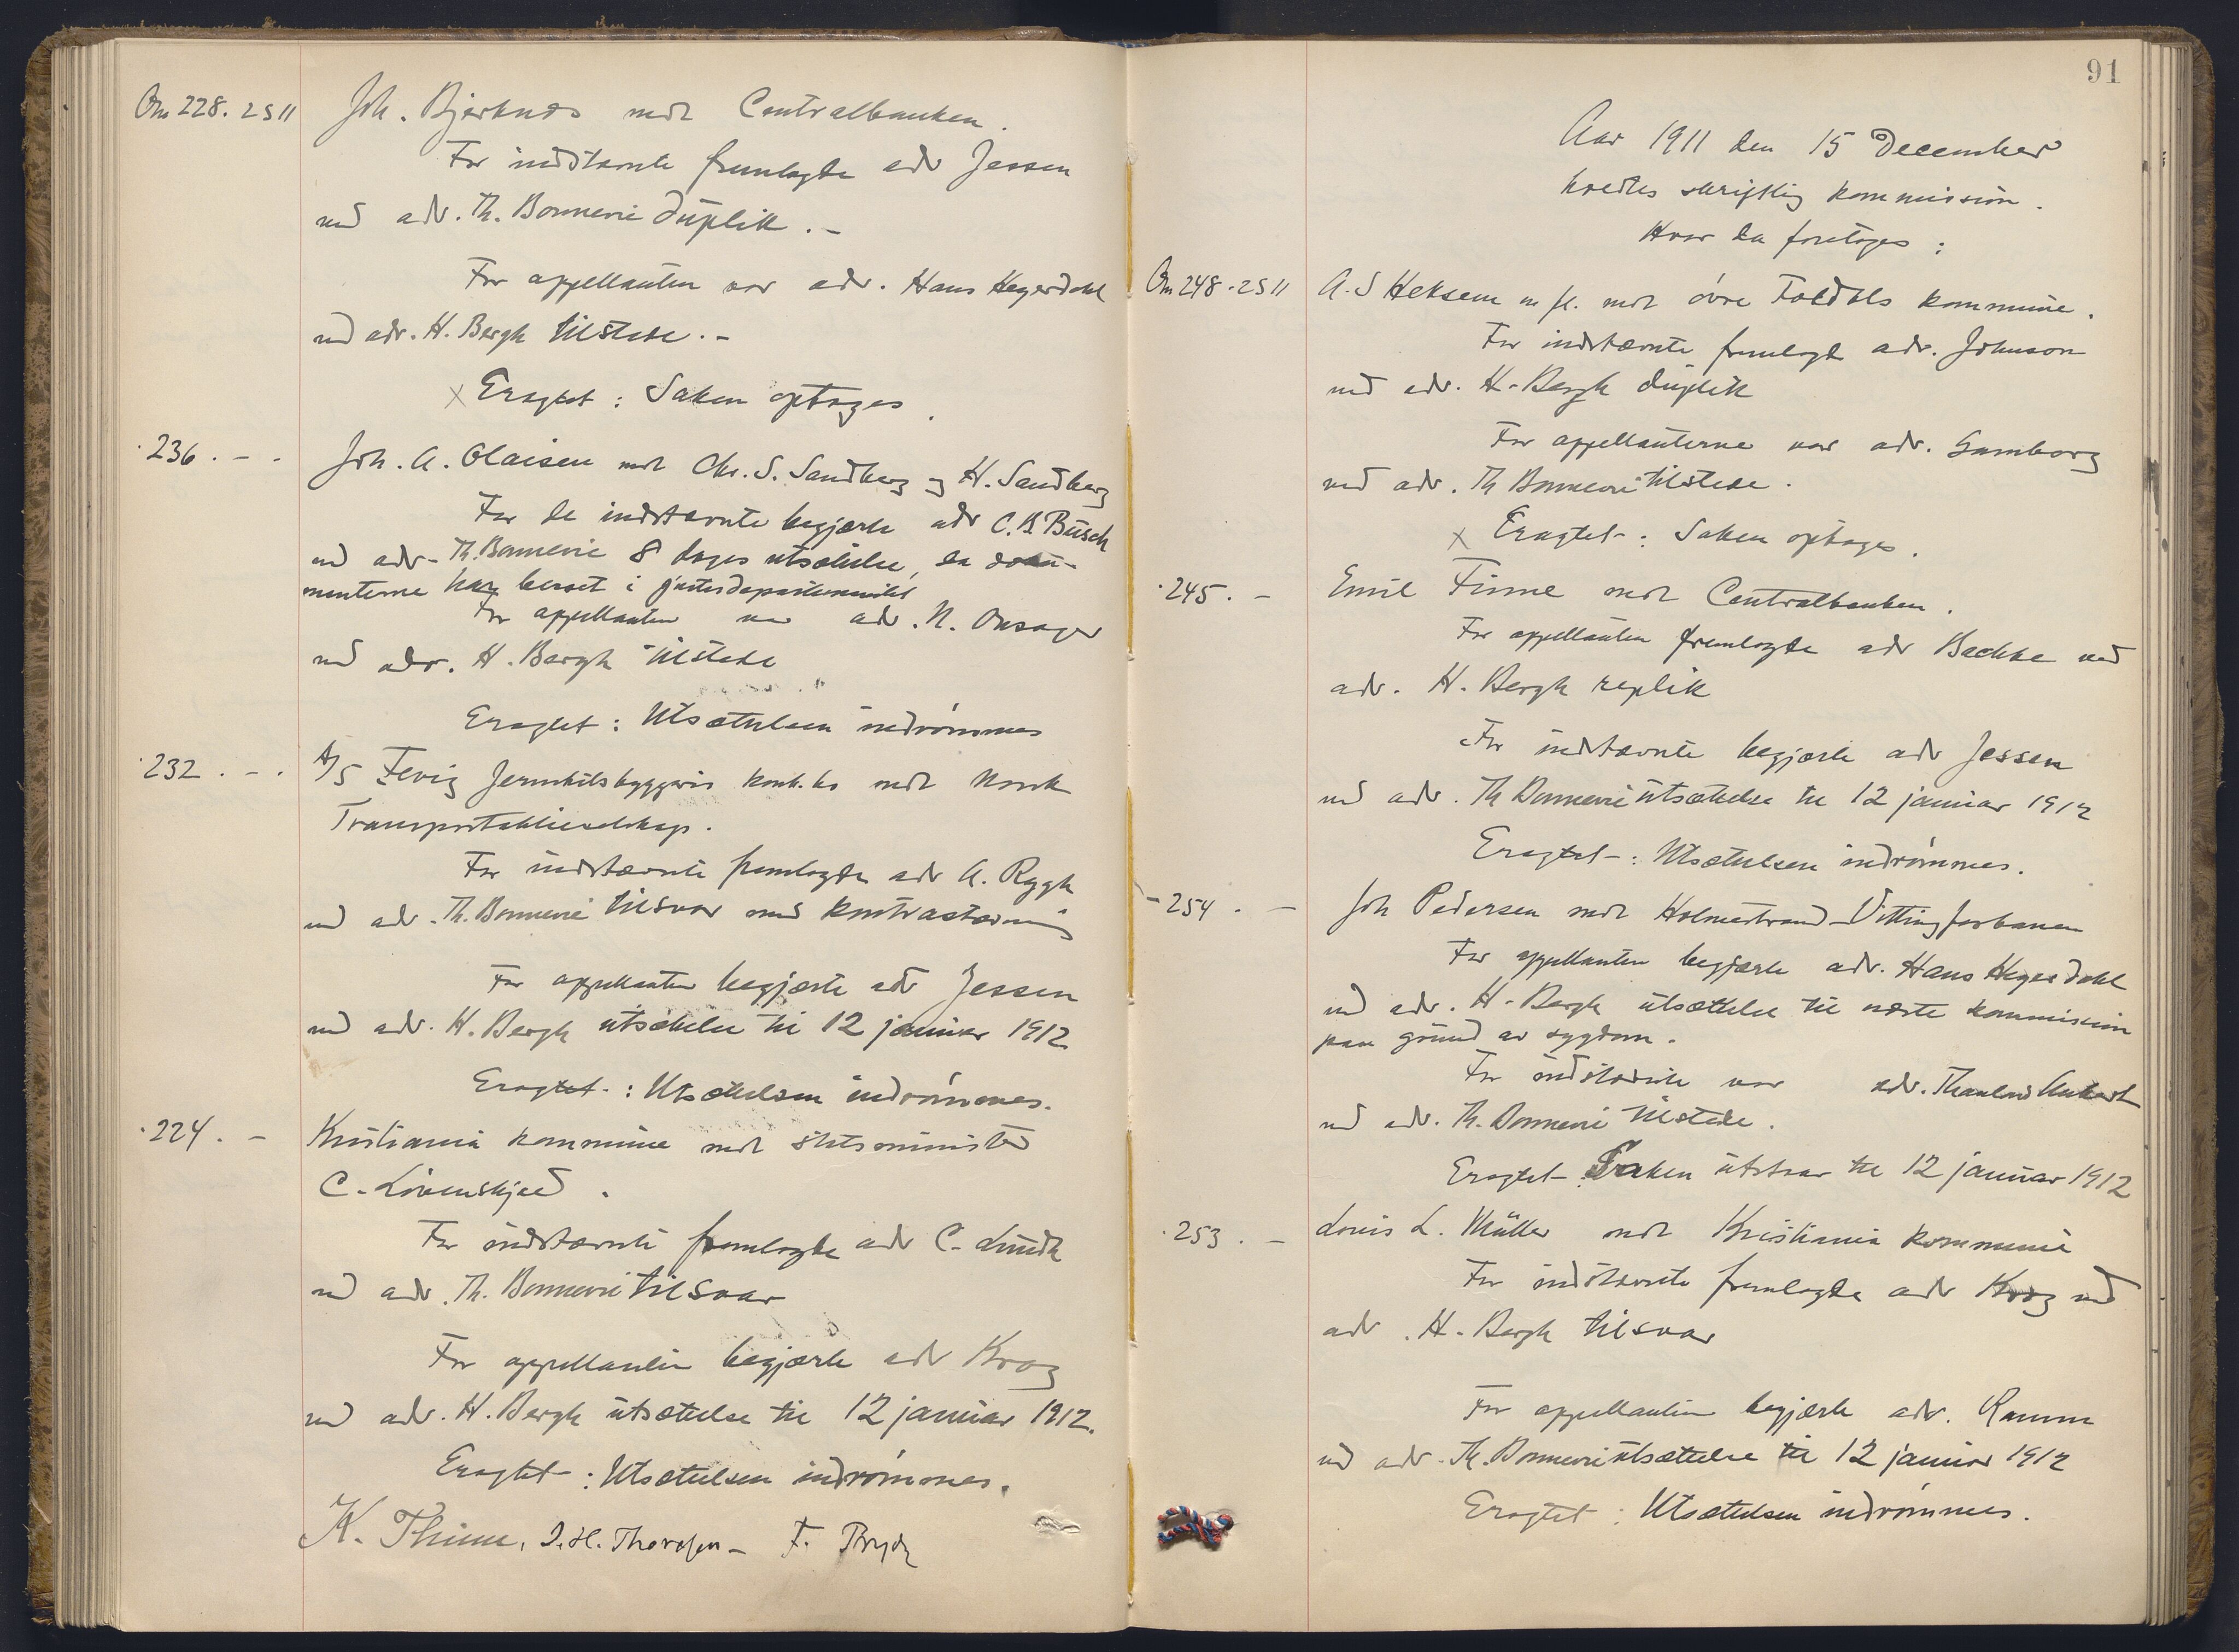 Om 228. 2511
Joh. Bjerknæs mot Centralbanken.
For indstævnte fremlagde adv Jessen
ved adv. Th. Bonnevie duplik. -
For appellanten var adv. Hans Hegerdahl
ved adv. H. Bergh tilstede. -
x Eragtet: Saken optages.
236. - -
Joh. A. Olaisen mot Chr. S. Sandberg og H. Sandberg
For de indstævnte begjærte adv C. B. Busch
ved adv. Th. Bonnevie 8 dages utsættelse, da doku-
menterne har beroet i justisdepartementet
For appellanten var adv. N. Onsager
ved adv. H. Bergh tilstede
Eragtet: Utsættelsen indrømmes
232. - .
A/S Fevig Jernskibsbyggeris konk.bo mot Norsk
Transportaktieselskap.
For indstævnte fremlagde adv A. Rygh
ved adv. Th. Bonnevie tilsvar med kontrastævning
For appellanten begjærte adv Jessen
ved adv. H. Bergh utsættelse til 12 januar 1912
Eragtet: Utsættelsen indrømmes.
224. -
Kristiania kommune mot statsminister
C. Løvenskjold.
For indstævnte fremlagde adv C. Lundh
ved adv. Th. Bonnevie tilsvar
For appellanten begjærte adv Krog
ved adv. H. Bergh utsættelse til 12 januar 1912.
Eragtet: Utsættelsen indrømmes.
K. Thime, I. H. Thoresen - F.
91
Aar 1911 den 15 December
holdtes skriftlig kommission.
Hvor da foretoges:
Om 248. 2511
A.S Heksem m fl. mot øvre Foldals kommune.
For indstævnte fremlagde adv. Johnson
ved adv. H. Bergh duplik
For appellanterne var adv. Gamborg
ved adv. Th Bonnevie tilstede.
x Eragtet: Saken optages.
245. -
Emil Finne mot Centralbanken.
For appellanten fremlagde adv Backke ved
adv. H. Bergh replik
For indstævnte begjærte adv Jessen
ved adv. Th Bonnevie utsættelse til 12 januar 1912
Eragtet: Utsættelsen indrømmes.
- 254. -
Joh Pedersen mot Holmestrand-Vittingfosbanen
For appellanten begjærte adv. Hans Hegerdahl
ved adv. H. Bergh utsættelse til næste kommission
paa grund av sygdom.
For indstævnte var adv. Thaulow Aubert
ved adv. Th. Bonnevie tilstede.
Eragtet: Saken utstaar til 12 januar 1912
253. -
Louis L. Müller mot Kristiania kommune
For indstævnte fremlagde adv Krog ved
adv. H. Bergh tilsvar
For appellanten begjærte adv. Ramm
ved adv. Th. Bonnevie utsættelse til 12 januar 1912
Eragtet: Utsættelsen indrømmes.